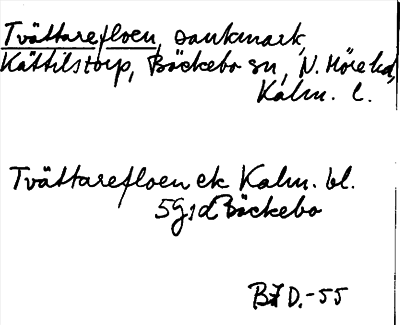 Tvättarefloen, sankmark,
Kättilstorp, Bäckebo sn, N. Möre hd,
Kalm. l.
Tvättarefloen ek Kalm. bl.
5g1d Bäckebo
BJD.-55